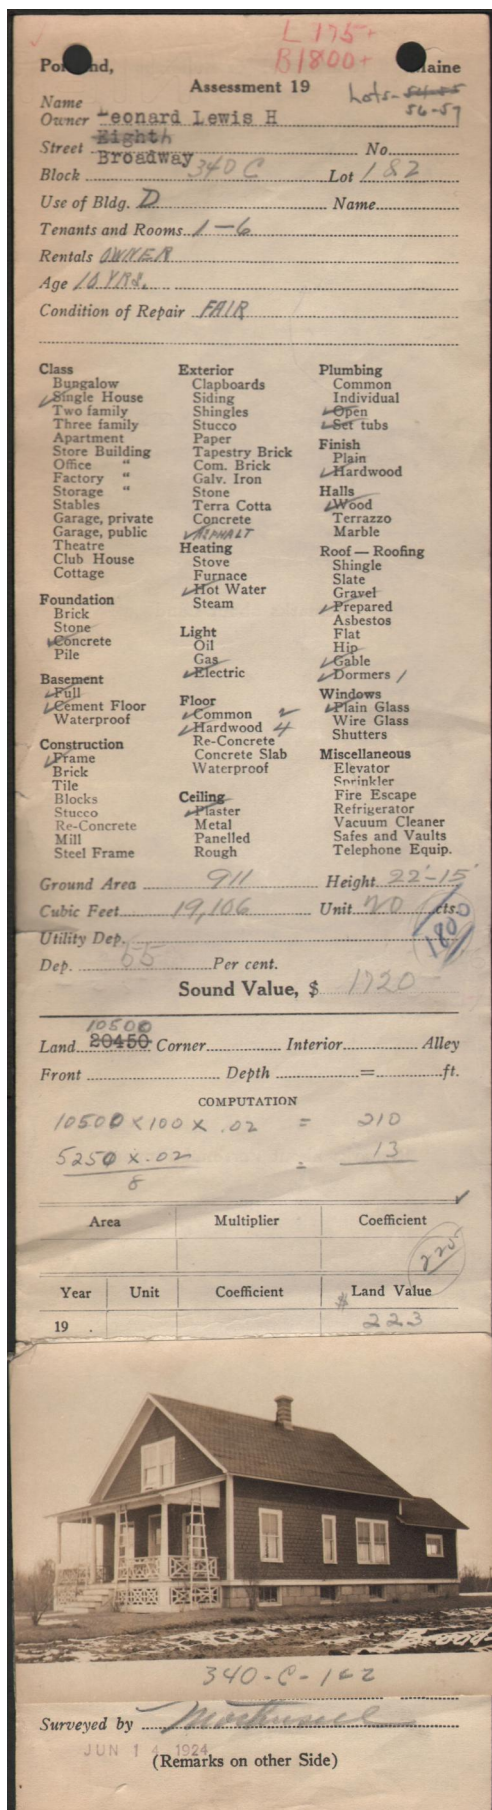 L 175+
B 1800+
Portland, Maine
Assessment 19
Lots- 54-55
56-57
Name
Owner Leonard Lewis H
Eighth
Street Broadway No.
Block 340 C Lot 182
Use of Bldg. D Name
Tenants and Rooms 1-6
Rentals OWNER
Age 10 YRS.
Condition of Repair FAIR
Class
Bungalow
✓Single House
Two family
Three family
Apartment
Store Building
Office "
Factory "
Storage "
Stables
Garage, private
Garage, public
Theatre
Club House
Cottage
Foundation
Brick
Stone
✓Concrete
Pile
Basement
✓Full
✓Cement Floor
Waterproof
Construction
✓Frame
Brick
Tile
Blocks
Stucco
Re-Concrete
Mill
Steel Frame
Exterior
Clapboards
Siding
Shingles
Stucco
Paper
Tapestry Brick
Com. Brick
Galv. Iron
Stone
Terra Cotta
Concrete
✓ASPHALT
Heating
Stove
Furnace
✓Hot Water
Steam
Light
Oil
Gas
✓Electric
Floor
✓Common 2
✓Hardwood 4
Re-Concrete
Concrete Slab
Waterproof
Ceiling
✓Plaster
Metal
Panelled
Rough
Plumbing
Common
Individual
✓Open
✓Set tubs
Finish
Plain
✓Hardwood
Halls
✓Wood
Terrazzo
Marble
Roof — Roofing
Shingle
Slate
Gravel
✓Prepared
Asbestos
Flat
Hip
✓Gable
✓Dormers 1
Windows
✓Plain Glass
Wire Glass
Shutters
Miscellaneous
Elevator
Sprinkler
Fire Escape
Refrigerator
Vacuum Cleaner
Safes and Vaults
Telephone Equip.
Ground Area 911 Height 22'-15'
Cubic Feet 19,106 Unit 20 cts.
1800
Utility Dep.
Dep. 55 Per cent.
Sound Value, $ 1720
10500
Land 20450 Corner Interior Alley
Front Depth = ft.
COMPUTATION
10500 x 100 x .02 = 210
5250 x .02 = 13
8
Area Multiplier Coefficient
225
Year Unit Coefficient Land Value
19 . $ 223
340-C-182
Surveyed by
JUN 14 1924
(Remarks on other Side)